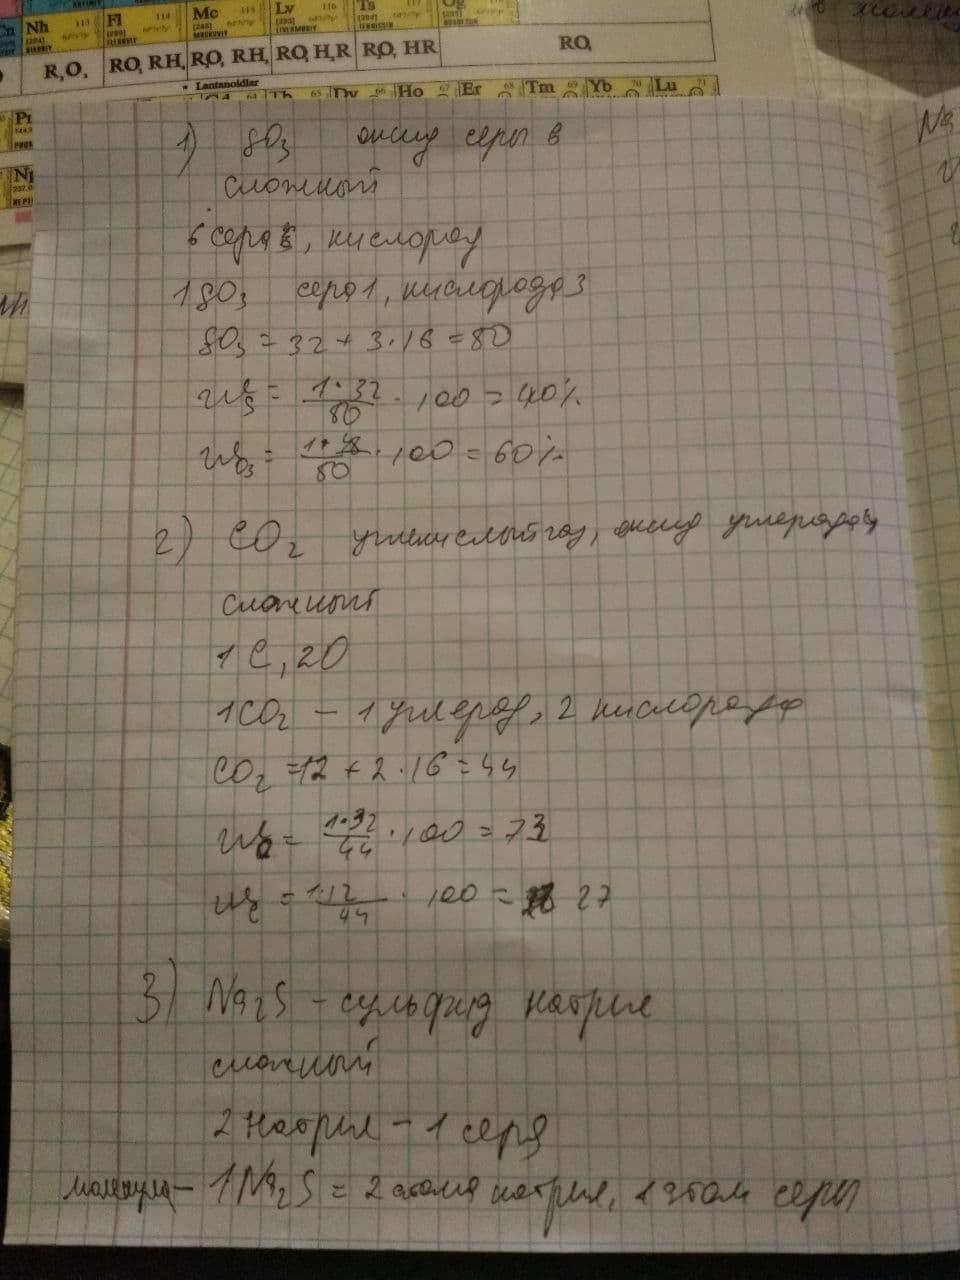 Nh 113 Fl 114 Mc 115 Lv 116 Ts 117 Og
R₂O₃ RO₂ RH₄ R₂O₅ RH₃ RO₃ H₂R R₂O₇ HR RO₄
* Lantanoidlar
Dy 66 Ho 67 Er 68 Tm 69 Yb 70 Lu 71
1) SO₃ оксид серы в
сложный
6 сера, кислород
1 SO₃ сера 1, кислорода 3
SO₃ = 32 + 3 · 16 = 80
ωS = 1·32/80 · 100 = 40%
ωO₃ = 1·48/80 · 100 = 60%
2) CO₂ углекислый газ, оксид углерода
сложный
1 C, 2O
1CO₂ – 1 углерод, 2 кислорода
CO₂ = 12 + 2 · 16 = 44
ωO = 1·32/44 · 100 = 73
ωC = 1·12/44 · 100 = 27
3) Na₂S – сульфид натрия
сложный
2 натрия – 1 сера
молекула – 1Na₂S = 2 атома натрия, 1 атом серы